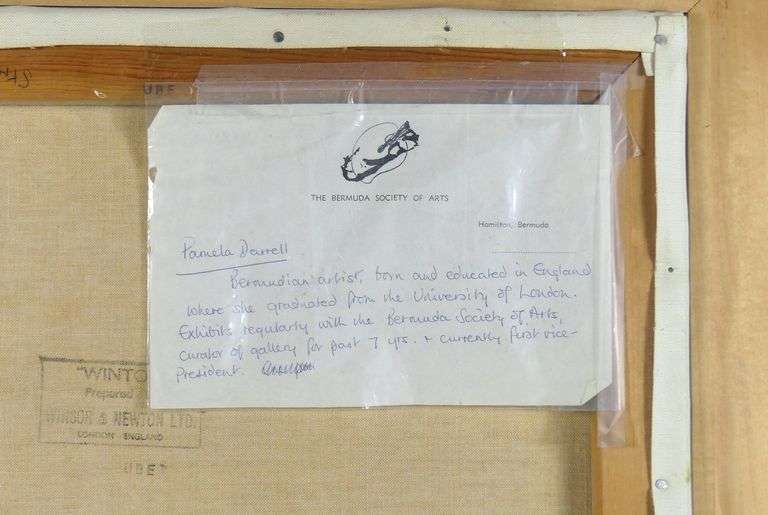 UBE
THE BERMUDA SOCIETY OF ARTS
Hamilton, Bermuda
Pamela Darrell
Bermudian artist, born and educated in England
where she graduated from the University of London.
Exhibits regularly with the Bermuda Society of Arts,
curator of gallery for past 7 yrs. + currently first vice-
President.
"WINTO
Prepared
WINSOR & NEWTON LTD.
LONDON ENGLAND
UBE